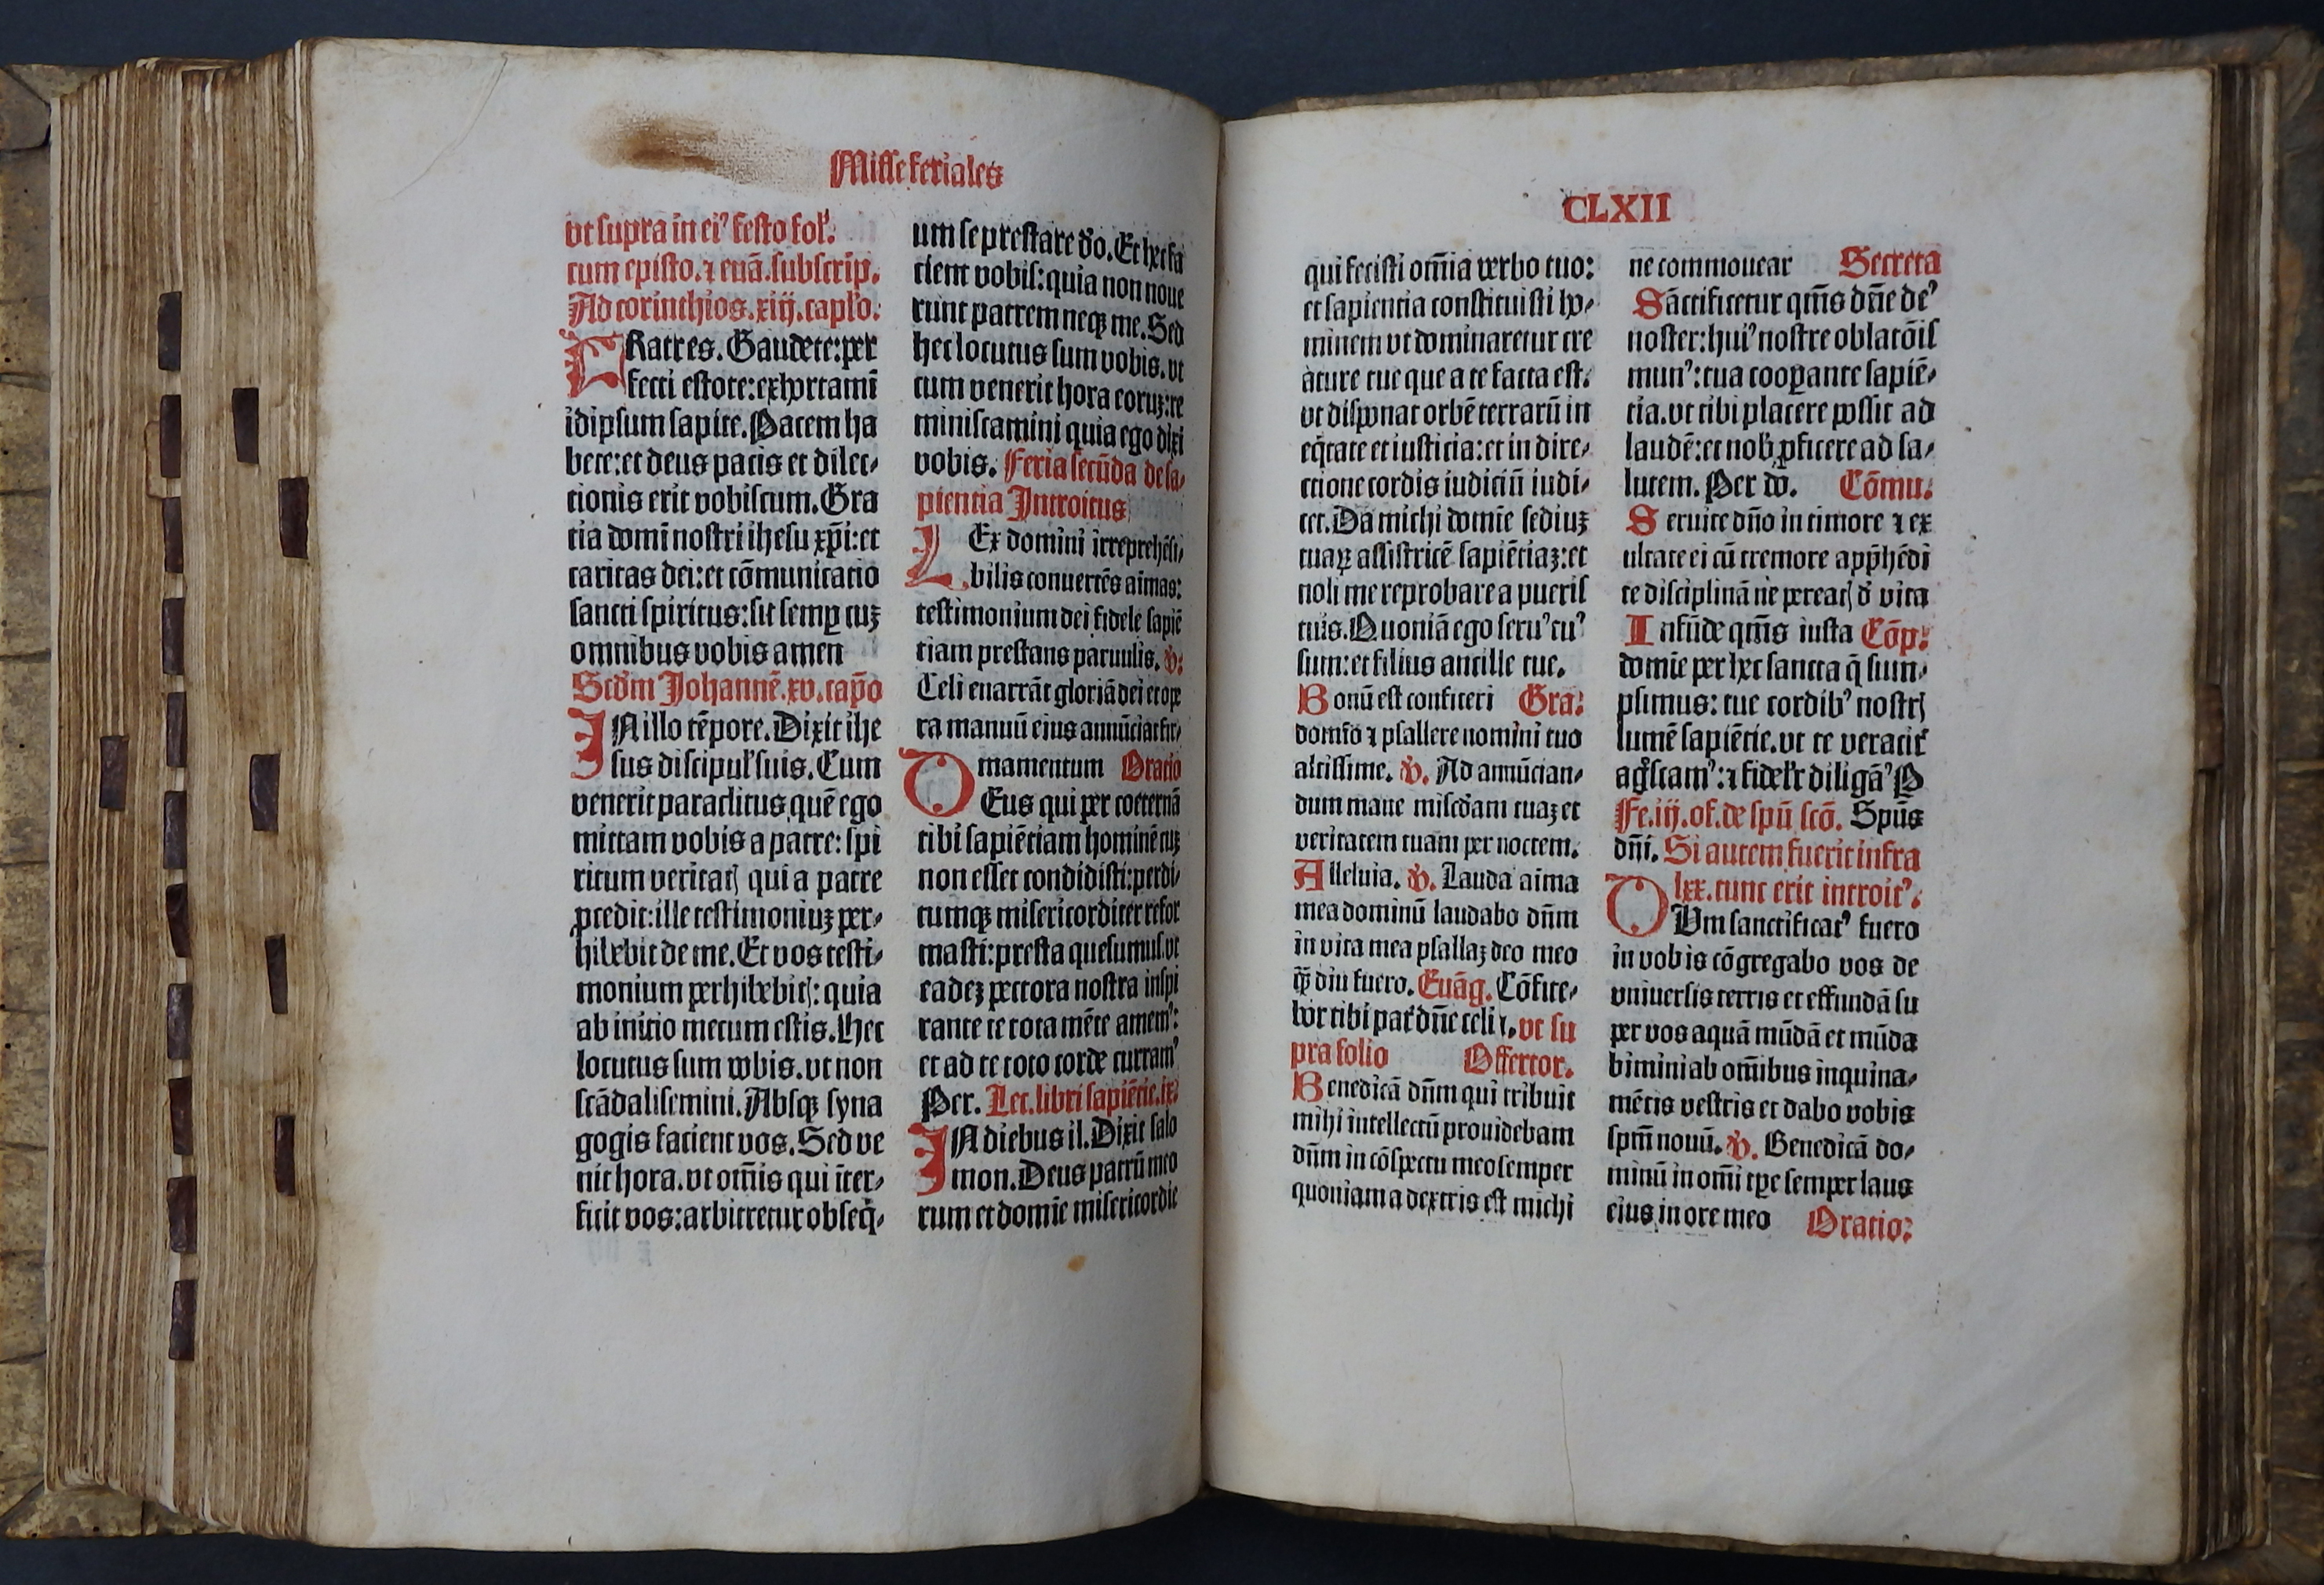 Misse feriales
vt supra in ei⁹ festo fol̃.
cum episto. ⁊ euā. subscrip.
Ad corinthios. xiij. caplo.
FRatres. Gaudete: per
fecti estote: exhortamī
idipsum sapite. Pacem ha
bete: et deus pacis et dilec⸗
tionis erit vobiscum. Gra
tia domī nostri ihesu xp̄i: et
caritas dei: et cōmunicatio
sancti spiritus: sit semꝑ cuȝ
omnibus vobis amen
Scd̄m Johannē. xv. cap̄o
IN illo tēpore. Dixit ihe
sus discipul̃ suis. Cum
venerit paraclitus quē ego
mittam vobis a patre: spi
ritum veritatꝭ qui a patre
ꝓcedit: ille testimoniuȝ per⸗
hibebit de me. Et vos testi⸗
monium perhibebitꝭ: quia
ab initio mecum estis. Hec
locutus sum vobis. vt non
scādalisemini. Absqꝫ syna
gogis facient vos. Sed ve
nit hora. vt om̄is qui īter⸗
ficit vos: arbitretur obseq̇⸗
um se prestare d̄o. Et hec fa
cient vobis: quia non noue
runt patrem neqꝫ me. Sed
hec locutus sum vobis. vt
cum venerit hora eoruȝ: re
miniscamini quia ego dixi
vobis. Feria secūda de sa⸗
pientia Introitus
LEx domini irreprehēsi⸗
bilis conuertēs aīmas:
testimonium dei fidele sapiē
tiam prestans paruulis. v̕.
Celi enarrāt gloriā dei et ope
ra manuū eius annūciat fir⸗
mamentum Oratio
DEus qui per coeternā
tibi sapiētiam hominē cuȝ
non esset condidisti: perdi⸗
tumqꝫ misericorditer refor
masti: presta quesumus. vt
eadeȝ pectora nostra inspi
rante te tota mēte amem⁹:
et ad te toto corde curram⁹
Per. Lec. libri sapiētie. ix.
IN diebus il. Dixit salo
mon. Deus patrū meo
rum et domīe misericordie
CLXII
qui fecisti om̄ia verbo tuo:
et sapientia constituisti ho⸗
minem vt dominaretur cre
ature tue que a te facta est.
vt disponat orbē terrarū in
eq̇tate et iusticia: et in dire⸗
ctione cordis iudiciū iudi⸗
cet. Da michi domīe sediuȝ
tuaꝝ assistricē sapiētiaȝ: et
noli me reprobare a pueris
tuis. Quoniā ego seru⁹ tu⁹
sum: et filius ancille tue.
Bonū est confiteri Gra.
domīo ⁊ psallere nomini tuo
altissime. v̕. Ad annūcian⸗
dum mane misc̄dam tuaȝ et
veritatem tuam per noctem.
Alleluia. v̕. Lauda aīma
mea dominū laudabo dn̄m
in vita mea psallaȝ deo meo
qꝫ̄ diu fuero. Euāg. Cōfite⸗
bor tibi pat̃ dn̄e celi ⁊. vt su
pra folio Offertor.
Benedicā dn̄m qui tribuit
mihi intellectū prouidebam
dn̄m in cōspectu meo semper
quoniam a dextris est michi
ne commouear Secreta
Sāctificetur qm̄s dn̄e de⁹
noster: hui⁹ nostre oblatōis
mun⁹: tua cooꝑante sapiē⸗
tia. vt tibi placere possit ad
laudē: et nob̕ ꝓficere ad sa⸗
lutem. Per do. Cōmu.
Seruite dn̄o in timore ⁊ ex
ultate ei cū tremore app̄hēdi
te disciplinā ne pereatꝭ d̄ vita
Infūde qm̄s iusta Cōp.
domīe per hec sancta q̄ sum⸗
psimus: tue cordib⁹ nostrꝭ
lumē sapiētie. vt te veracit̃
ag̃scam⁹: ⁊ fidel̃r diligā⁹ P
Fe. iij. of. de spū scō. Spūs
dn̄i. Si autem fuerit infra
lxx. tunc erit introit⁹.
CUm sanctificat⁹ fuero
in vobis cōgregabo vos de
vniuersis terris et effundā su
per vos aquā mūdā et mūda
bimini ab om̄ibus inquina⸗
mētis vestris et dabo vobis
spm̄ nouū. v̕. Benedicā do⸗
minū in om̄i tꝑe semper laus
eius in ore meo Oratio.